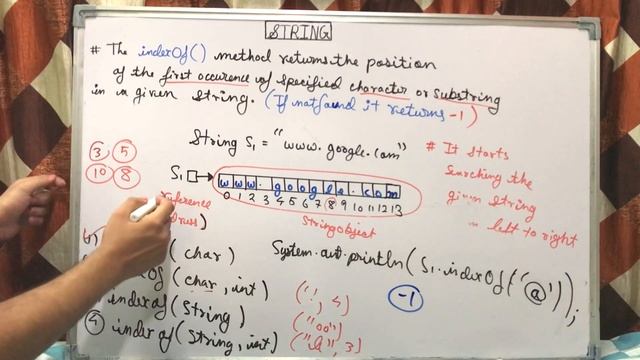 STRING
# The indexOf() method returns the position
of the first occurence of specified character or substring
in a given string. (If not found it returns -1)
String S1 = "www.google.com"
# It starts
searching the
given string
left to right
3, 5
10 8
S1
w w w . g o o g l e . c o m
0 1 2 3 4 5 6 7 8 9 10 11 12 13
String object
(char)
(char, int)
indexof(String)
④ indexof(String, int)
('.', 4)
("oo")
3)
System.out.println(S1.indexOf('@'));
-1